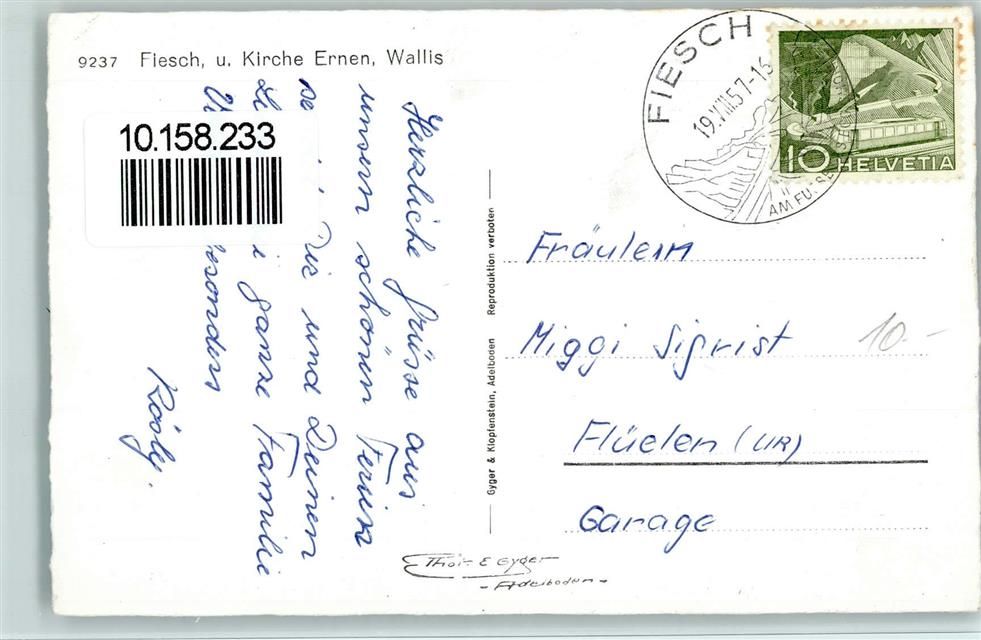 9237 Fiesch, u. Kirche Ernen, Wallis
10.158.233
Herzliche Grüsse aus
unsern schönen Ferien
Dir und Deinem
ganze Familie
Rösly.
Reproduktion verboten
Gyger & Klopfenstein, Adelboden
FIESCH
19.VIII.57-15
AM FU
10 HELVETIA
Fräulein
Miggi Sigrist
10.-
Flüelen (UR)
Garage
E Gyger
- Adelboden -